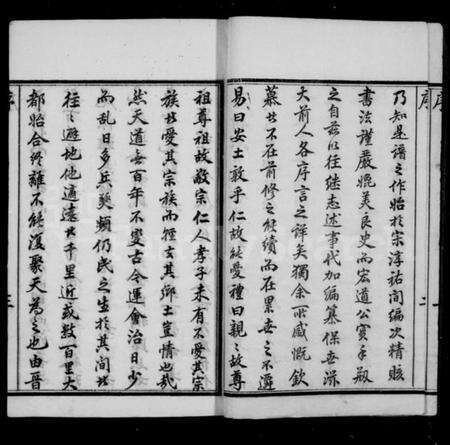 序
乃知是譜之作始於宗淳祐間編次精賅
書法謹嚴媲美良史而宏道公實手剏
之自茲以往繼志述事代加編纂保世滋
大前人各序言之詳矣獨余所感慨欽
慕者不在前修之能續而在累世之不遷
易曰安土敦乎仁故能愛禮曰親親故尊
二
祖尊祖故敬宗仁人孝子未有不愛其宗
族者愛其宗族而輕去其鄉土豈情也哉
然天道無百年不變古今運會治日少
而亂日多兵燹頻仍民之生於其間者
往往避地他適遠者千里近或數百里大
都始合終離不能復聚天為之也由晉
三